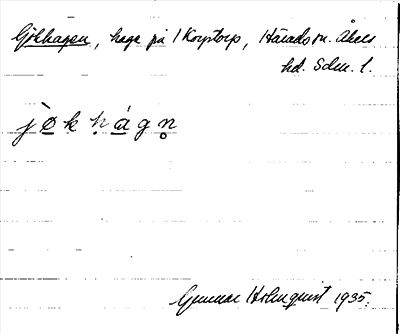 Gökhagen, hage på 1 Korptorp, Härads sn. Åkers
hd. Sdm. l.
jø̀kḥág̥n̥
Gunnar Holmquist 1935.